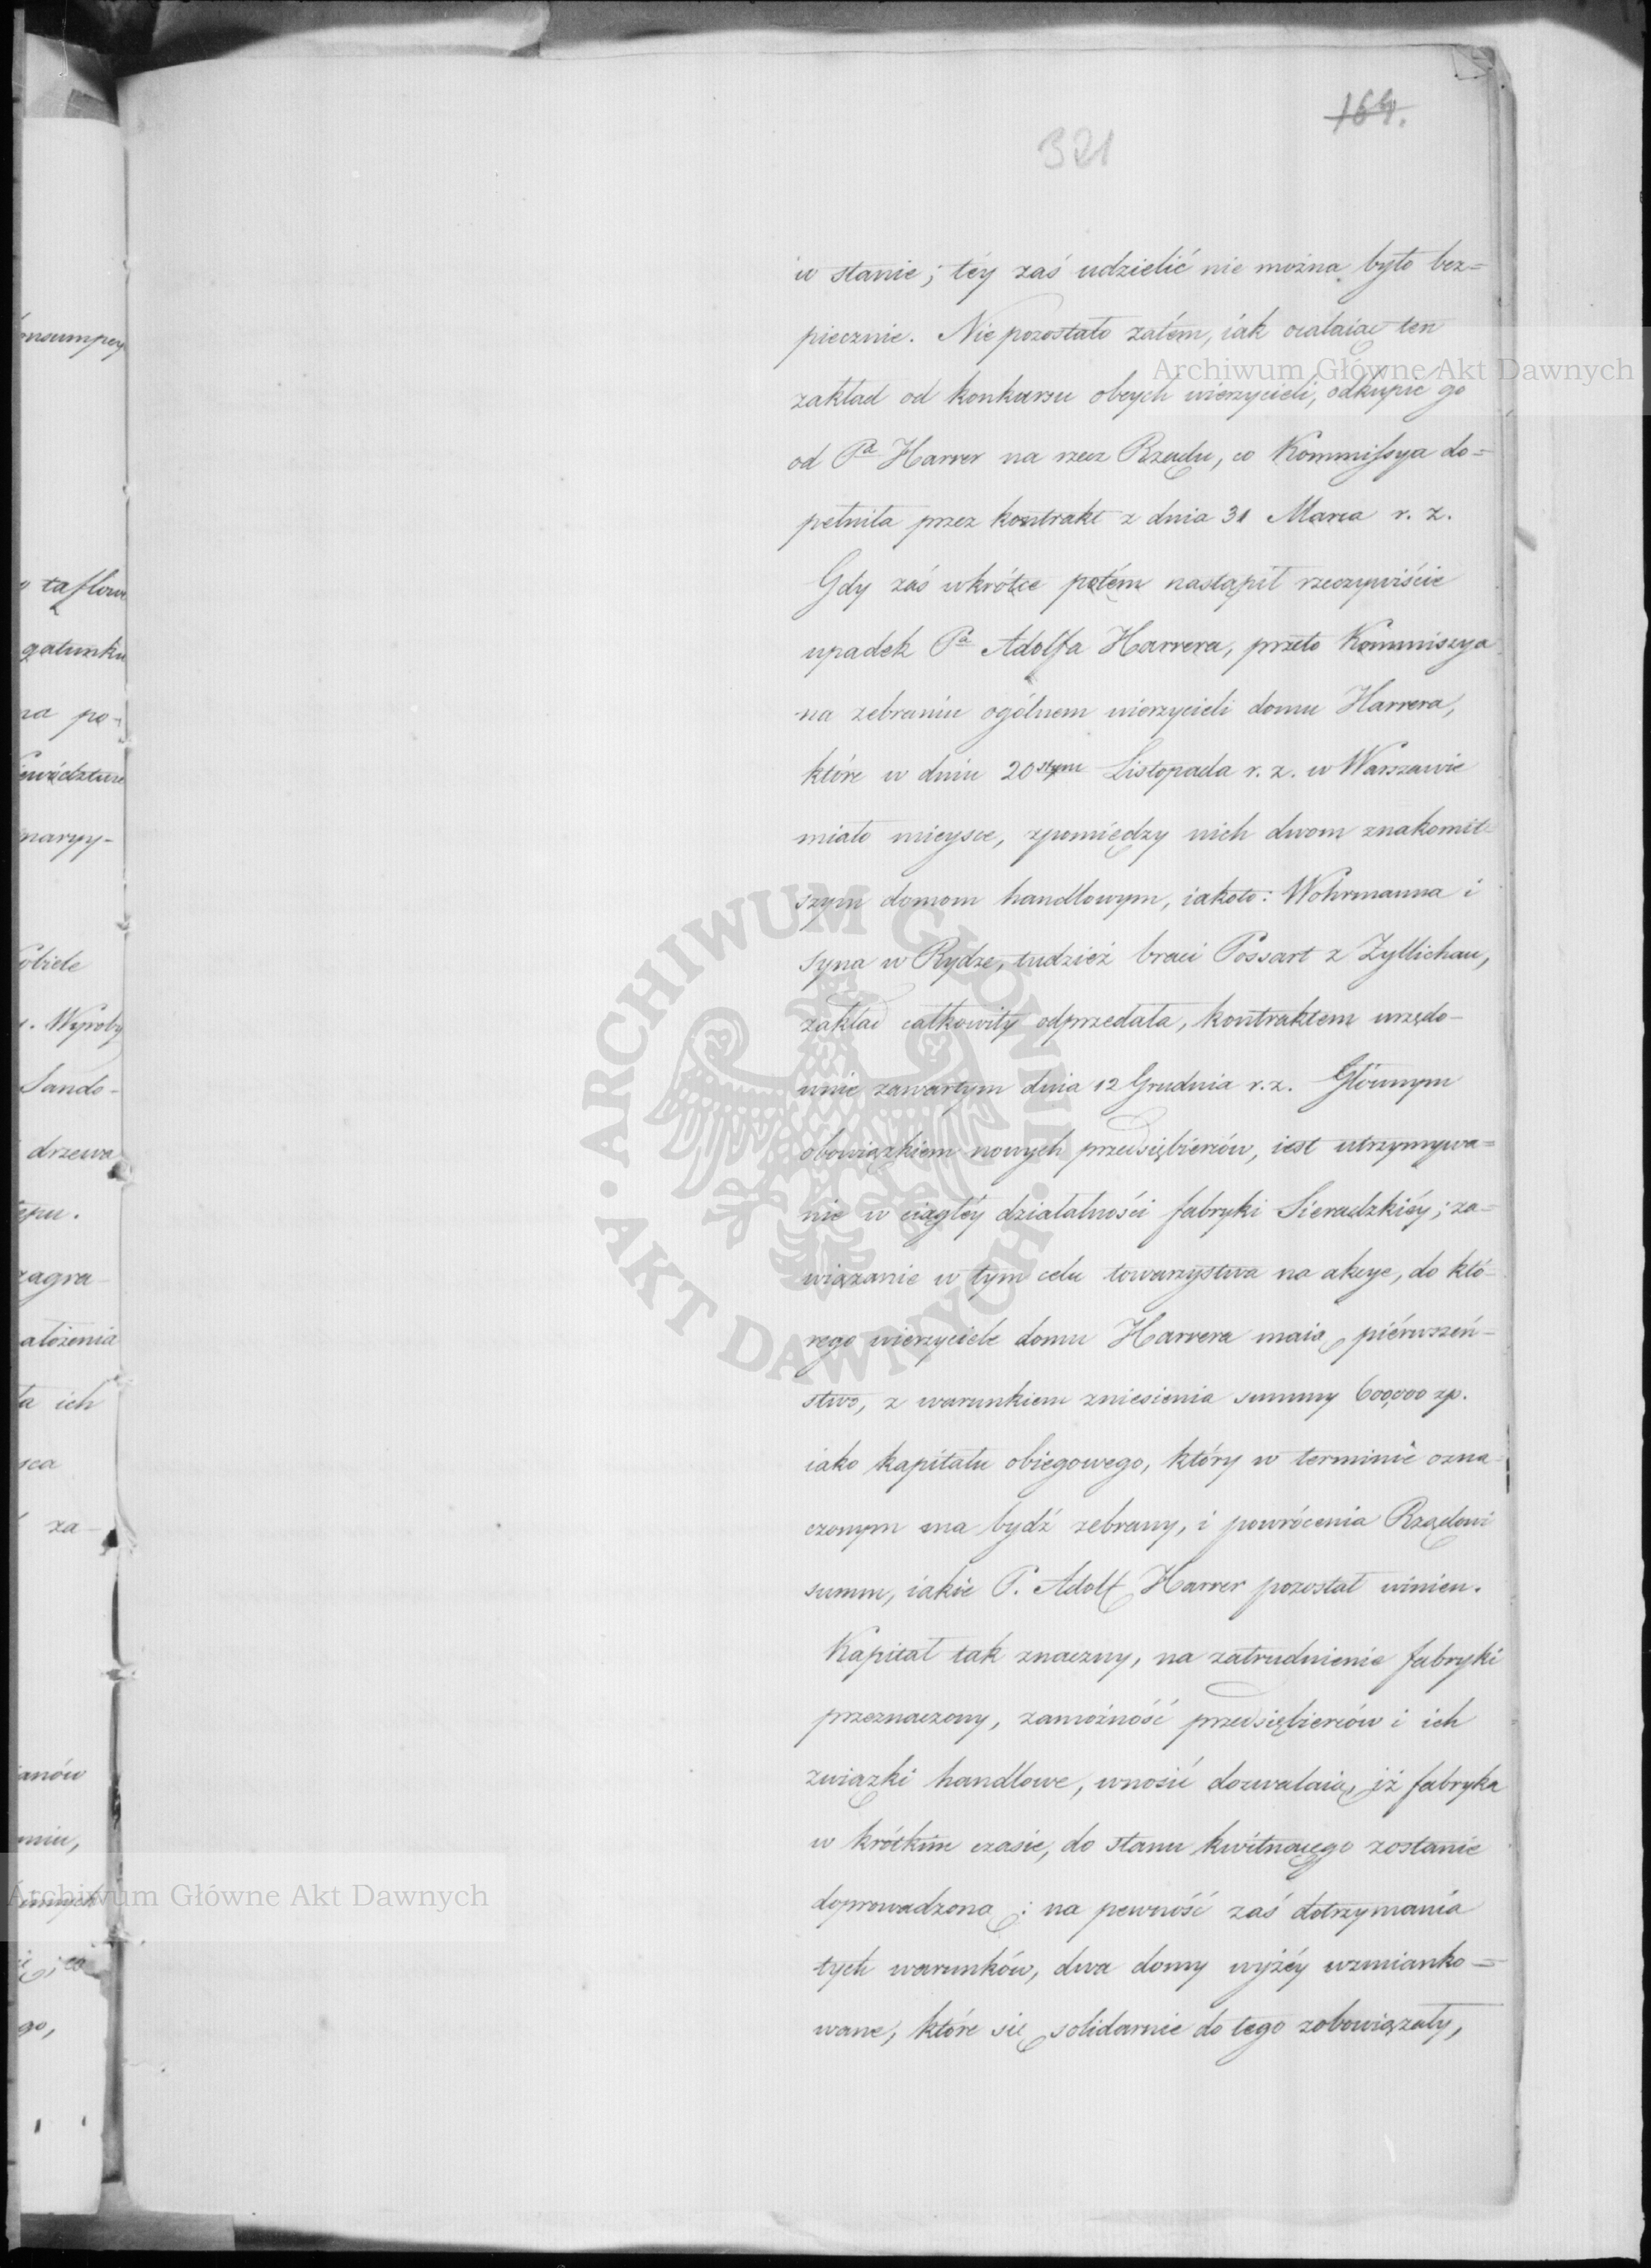 164.
321
w stanie; téy zaś udzielić nie można było bez=
piecznie. Nie pozostało zatém, iak ocalaiąc ten
zakład od konkursu obcych wierzycieli, odkupić go
od Pa Harrer na rzecz Rządu, co Kommissya do=
pełniła przez kontrakt z dnia 31 Marca r. z.
Gdy zaś wkrótce potém nastąpił rzeczywiście
upadek Pa Adolfa Harrera, przeto Kommissya
na zebraniu ogólnem wierzycieli domu Harrera,
które w dniu 20stym Listopada r. z. w Warszawie
miało mieysce, zpomiędzy nich dwom znakomit
szym domom handlowym, iakoto: Wohrmanna i
syna w Rydze, tudzież braci Possart z Zyllichau,
zakład całkowity odprzedała, kontraktem urzędo-
wnie zawartym dnia 12 Grudnia r. z. Głównym
obowiązkiem nowych przedsiębierców, iest utrzymywa=
nie w ciągłéy działalności fabryki Sieradzkiéy; za=
wiązanie w tym celu towarzystwa na akcye, do któ-
rego wierzyciele domu Harrera maią piérwszeń-
stwo, z warunkiem zniesienia summy 600,000 zp.
iako kapitału obiegowego, który w terminie ozna-
czonym ma bydź zebrany, i powrócenia Rządowi
summ, iakie P. Adolf Harrer pozostał winien.
Kapitał tak znaczny, na zatrudnienie fabryki
przeznaczony, zamożność przedsiębierców i ich
związki handlowe, wnosić dozwalaią, iż fabryka
w krótkim czasie, do stanu kwitnącego zostanie
doprowadzoną; na pewność zaś dotrzymania
tych warunków, dwa domy wyżéy wzmianko=
wane, które się solidarnie do tego zobowiązały,
onsumpcy
taflowe
gatunku
na po-
obiele
Wyroby
Sando-
drzewa
zagra-
ałożenia
ta ich
za-
anów
go,
Archiwum Główne Akt Dawnych
Archiwum Główne Akt Dawnych
ARCHIWUM GŁÓWNE · AKT DAWNYCH ·